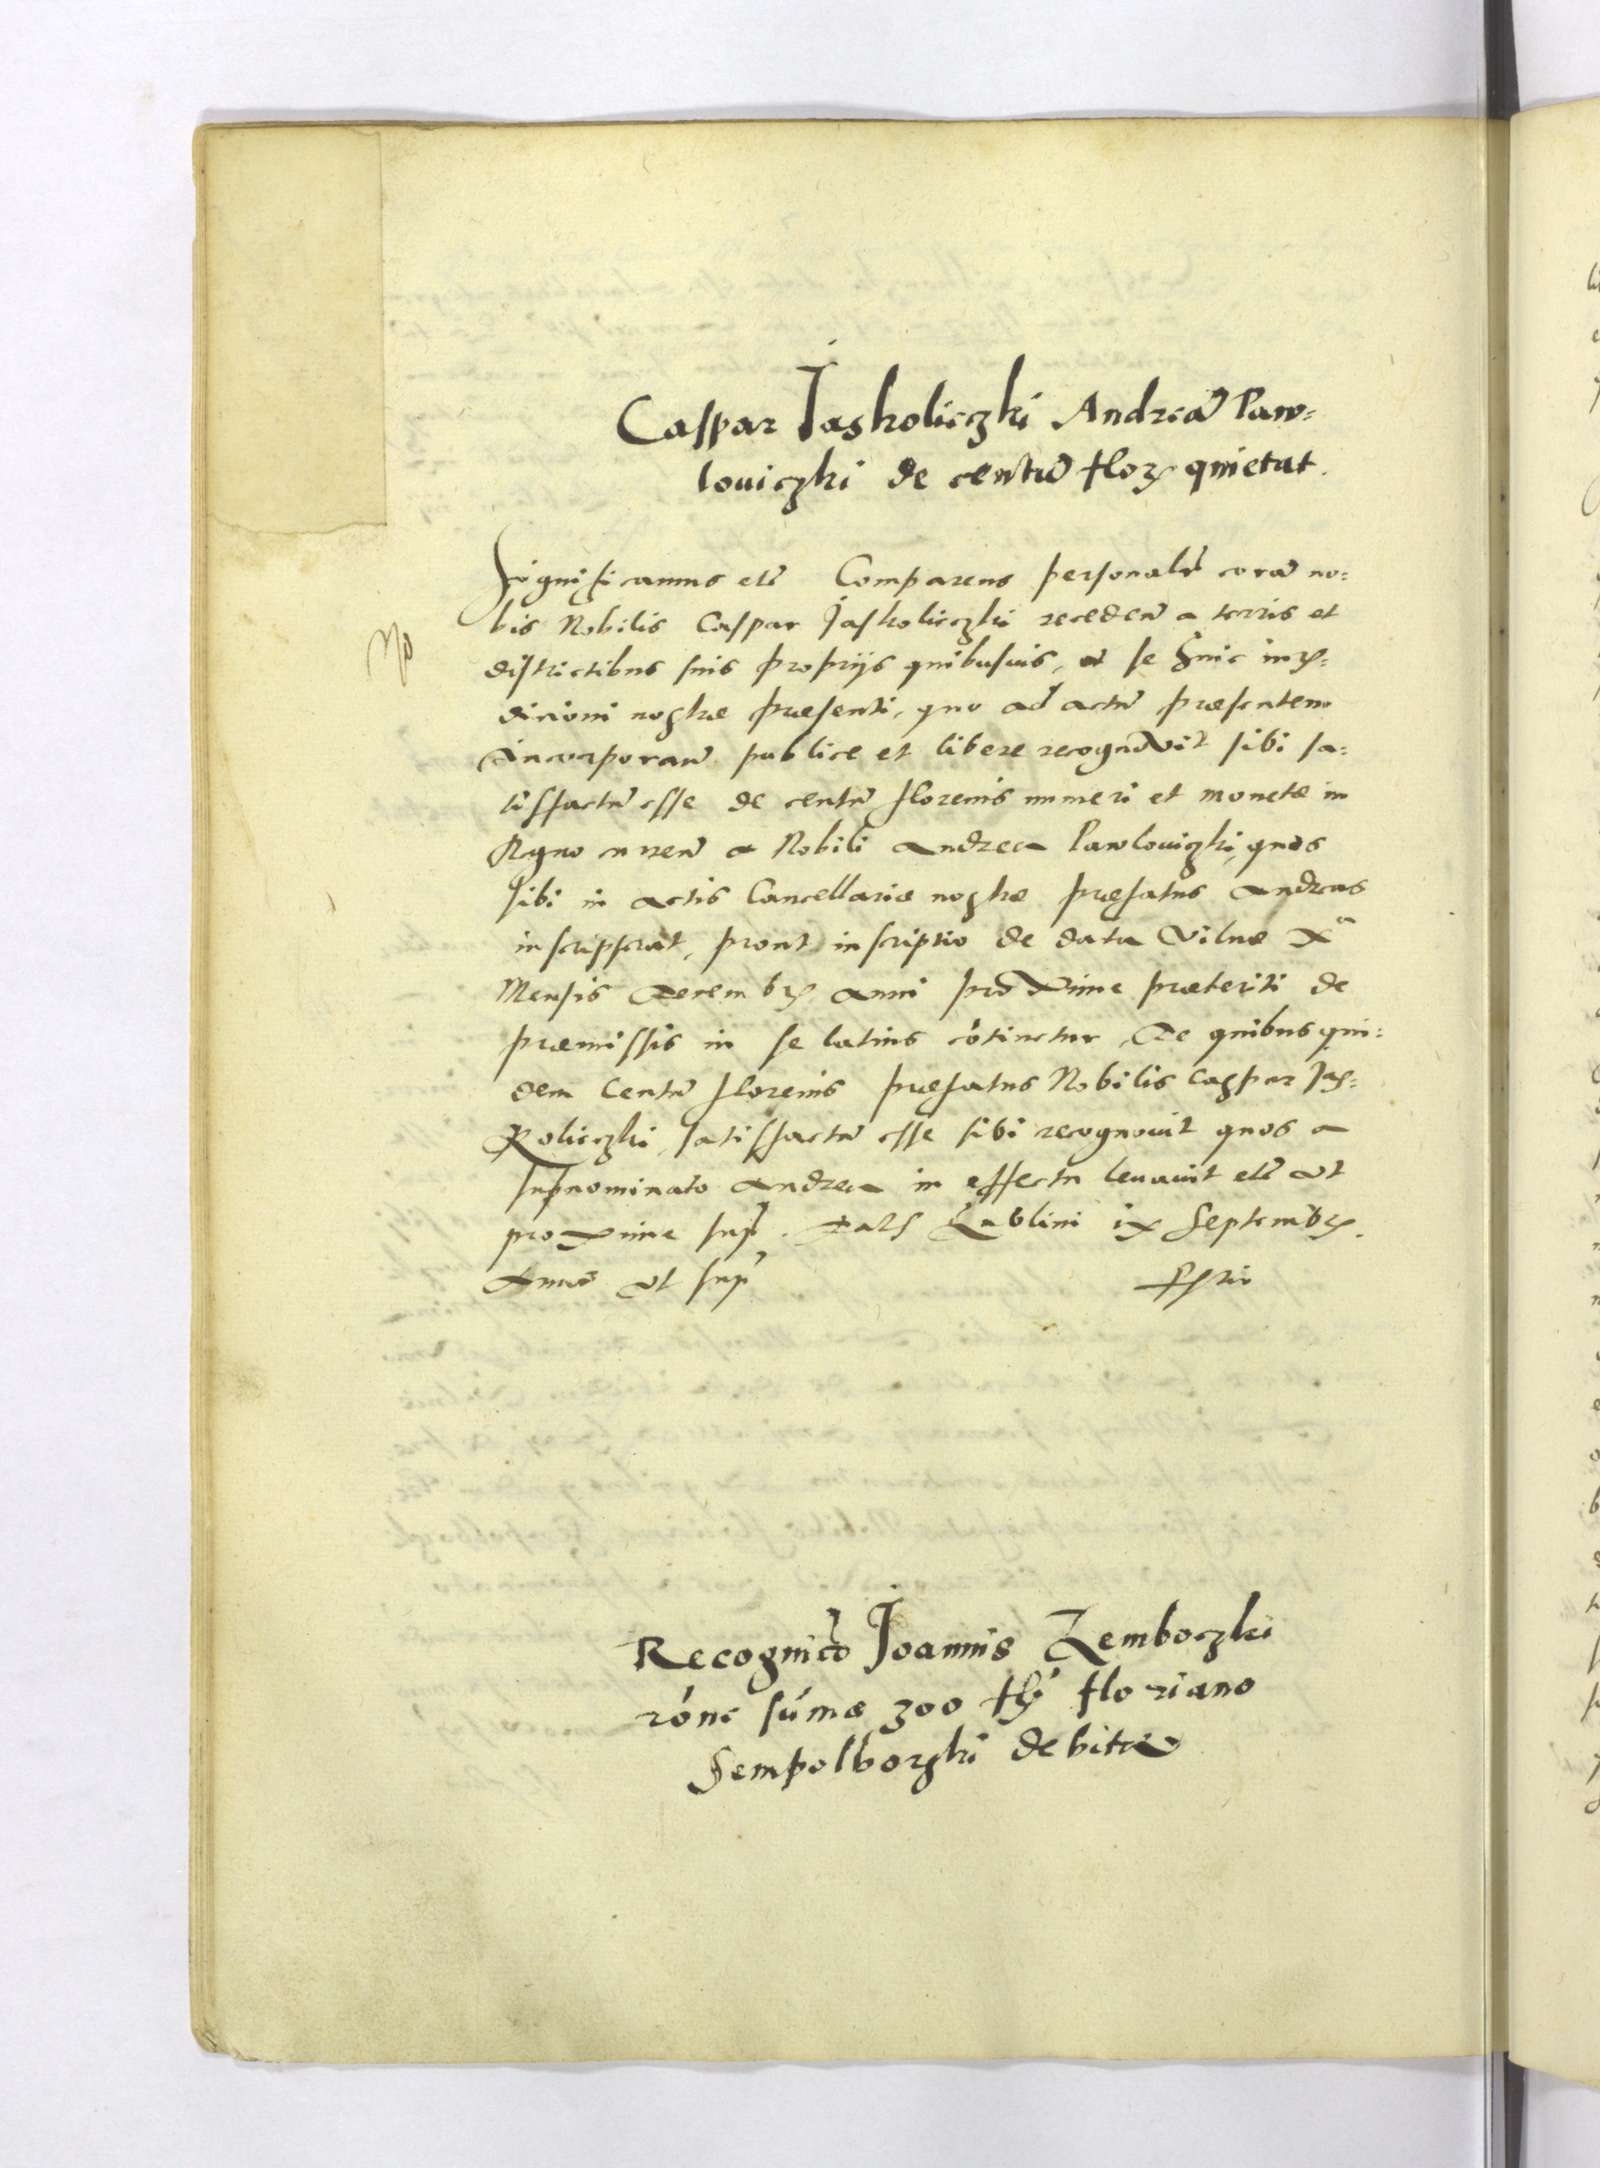 Caspar Jaskoliczki Andreā Paw=
louiczki de centū flor quietat.
Significamus etc̄ Comparens personalr̄ corā no=
bis Nobilis Caspar Jaskoliczki recedeñ a terris et
districtibus suis proprijs quibusuis, et se huic iur=
dicioni nostræ præsenti, quo ad actū præsentem
incorporañ publice et libere recognovit sibi sa=
tisfactū esse de centū florenis numeri et monetæ in
Regno curreñ a Nobili Andrea Pawlouiczki, quos
sibi in actis Cancellariæ nostræ præfatus Andreas
inscripserat, prout inscriptio de data Vilnæ Xᵃ
Mensis Decembr̄ anni proxime præteriti de
præmissis in se latius cōtinetur, De quibus qui=
dem Centū florenis præfatus Nobilis Caspar Jas=
Koliczki satisfactū esse sibi recognouit quos a
supnominato Andrea in effectu leuauit etc̄ vt
proxime sup̄. Dat̄ Lublini ix Septembr̄.
Anno vt sup̄
Recognitō Joannis Zemboczki
rōne sūmæ 300 fl̄ floriano
Sempolborski debitæ